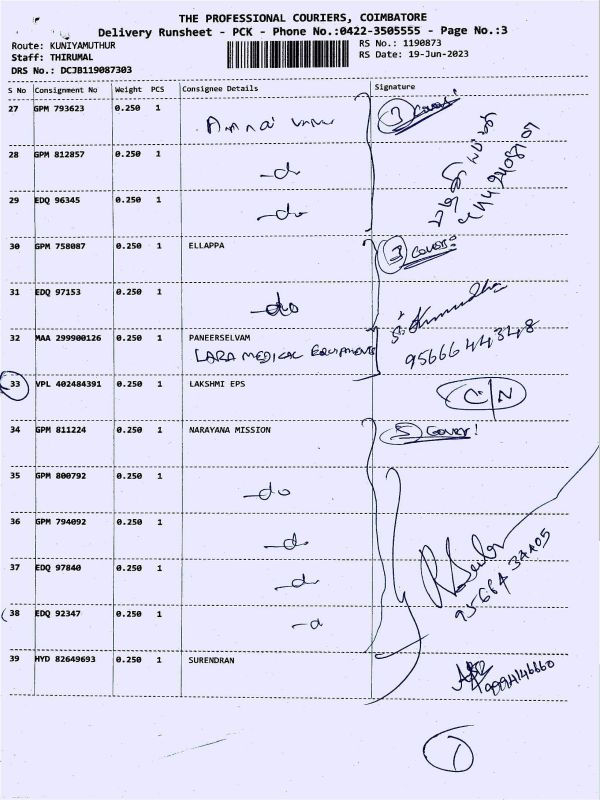 THE PROFESSIONAL COURIERS, COIMBATORE
Delivery Runsheet - PCK - Phone No.:0422-3505555 - Page No.:3
Route: KUNIYAMUTHUR
RS No.: 1190873
Staff: THIRUMAL
RS Date: 19-Jun-2023
DRS No.: DCJB119087303
S No Consignment No Weight PCS Consignee Details Signature
27 GPM 793623 0.250 1 3 Cover!
28 GPM 812857 0.250 1 -do
29 EDQ 96345 0.250 1 -do
30 GPM 758087 0.250 1 ELLAPPA 3 Cover!
31 EDQ 97153 0.250 1 -do
32 MAA 299900126 0.250 1 PANEERSELVAM
LARA MEDICAL EQUIPMENTS 9566644348
33 VPL 402484391 0.250 1 LAKSHMI EPS C/N
34 GPM 811224 0.250 1 NARAYANA MISSION 5 Cover!
35 GPM 800792 0.250 1 -do
36 GPM 794092 0.250 1 -do
37 EDQ 97840 0.250 1 -do
38 EDQ 92347 0.250 1
39 HYD 82649693 0.250 1 SURENDRAN 9994146660
1